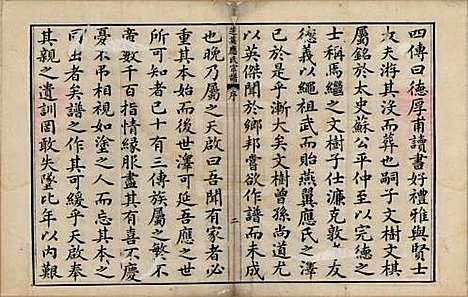 四傳曰德厚甫讀書好禮雅與賢士
大夫游其沒而葬也嗣子文樹文棋
屬銘於太史蘇公平仲至以完德之
士稱焉繼之文樹子仕濂克敦孝友
德義以繩祖武而貽燕翼應氏之澤
已於是乎漸大矣文樹曾孫尚道尤
以英傑聞於鄉邦嘗欲作譜而未成
蘆茨應氏宗譜 序 二
也晚乃屬之天啟曰吾聞有家者必
重其本始而後世澤可延吾應之世
次可知者已十有三傳族屬之繁不
啻數千百指情緣服盡其有喜不慶
憂不弔相視如塗之人而忘其本之
同出者矣譜之作其可緩乎天啟奉
其親之遺訓罔敢失墜比年以內艱